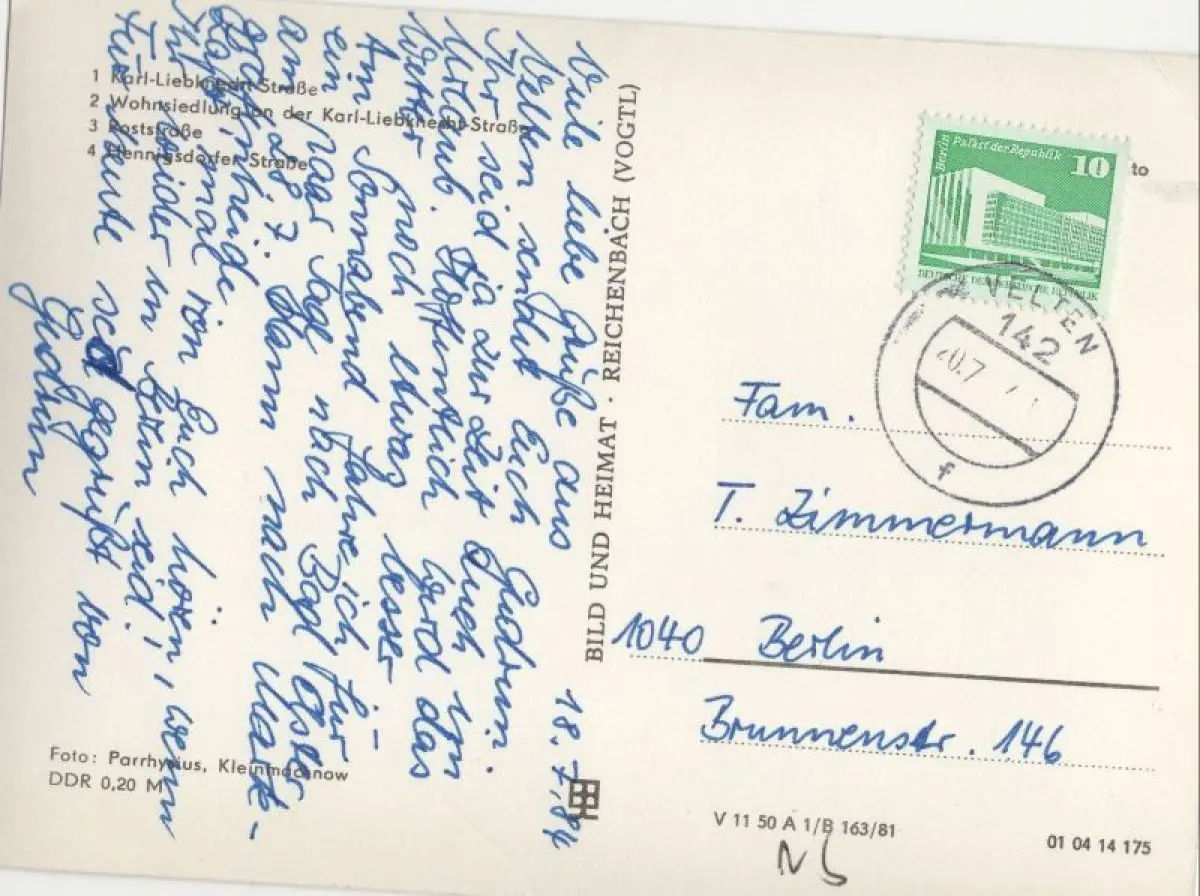 1 Karl-Liebknecht-Straße
2 Wohnsiedlung an der Karl-Liebknecht-Straße
3 Poststraße
4 Hennigsdorfer Straße
18.7.84
Viele liebe Grüße aus
Velten sendet Euch Gudrun.
Ihr seid ja zur Zeit auch im
Urlaub. Hoffentlich wird das
Wetter noch etwas besser
Am Sonnabend fahre ich für
ein paar Tage nach Bad
am 28.7. dann nach Mark-
grafenheide.
Laßt mal von Euch hören, wenn
Ihr wieder in Berlin seid.
Für heute seid gegrüßt von
Gudrun
Foto: Parrhysius, Kleinmachnow
DDR 0,20 M
BILD UND HEIMAT · REICHENBACH (VOGTL)
Berlin Palast der Republik
10
DEUTSCHE DEMOKRATISCHE REPUBLIK
to
VELTEN
142
20.7
f
Fam.
T. Zimmermann
1040 Berlin
Brunnenstr. 146
V 11 50 A 1/B 163/81
01 04 14 175